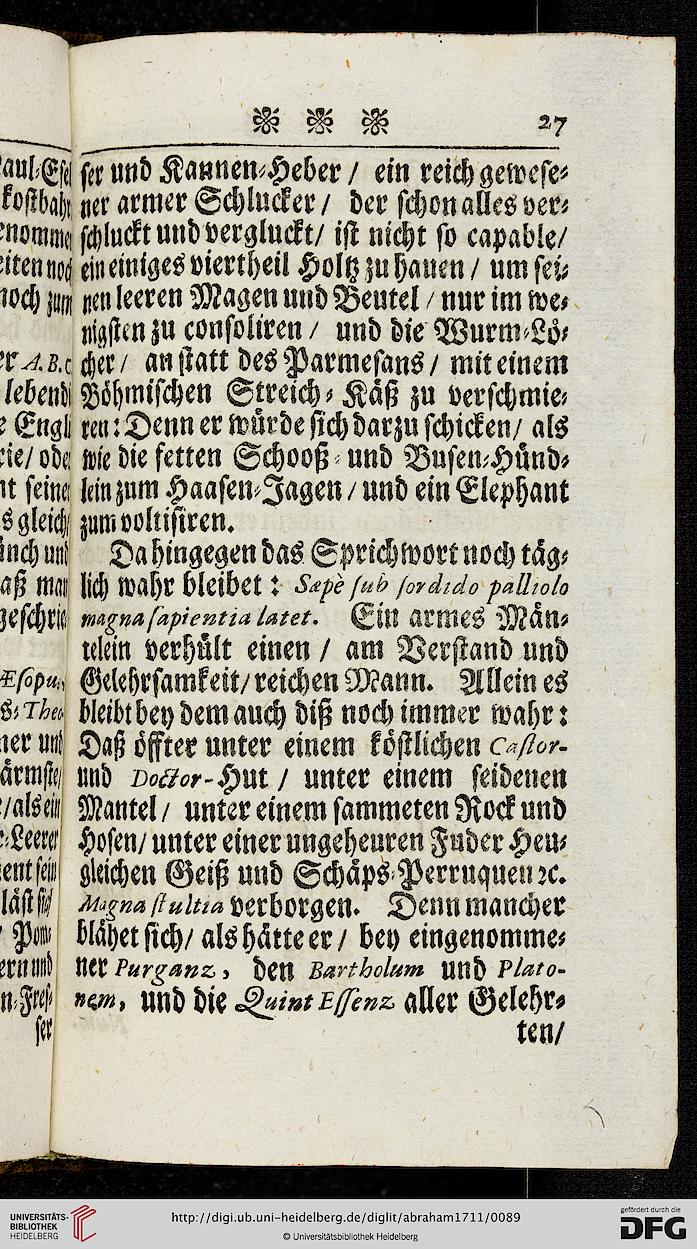 27
ser und Kannen-Heber / ein reich gewese-
ner armer Schlucker / der schon alles ver-
schluckt und vergluckt / ist nicht so capable /
ein einiges viertheil Holtz zu hauen / um sei-
nen leeren Magen und Beutel / nur im we-
nigsten zu consoliren / und die Wurm-Lö-
cher / an statt des Parmesans / mit einem
Böhmischen Streich-Käß zu verschmie-
ren: Denn er würde sich darzu schicken / als
wie die fetten Schooß- und Busen-Hünd-
lein zum Haasen-Jagen / und ein Elephant
zum voltisiren.
Da hingegen das Sprichwort noch täg-
lich wahr bleibet: Sæpè sub sordido palliolo
magna sapientia latet. Ein armes Män-
telein verhült einen / am Verstand und
Gelehrsamkeit / reichen Mann. Allein es
bleibt bey dem auch diß noch immer wahr:
Daß öffter unter einem köstlichen Castor-
und Doctor-Hut / unter einem seidenen
Mantel / unter einem sammeten Rock und
Hosen / unter einer ungeheuren Fuder Heu-
gleichen Geiß und Schäps-Perruquen ꝛc.
Magna stultia verborgen. Denn mancher
blähet sich / als hätte er / bey eingenomme-
ner Purganz, den Bartholum und Plato-
nem, und die Quint Essenz aller Gelehr-
ten /
aul-Esel
kostbahr
enomme
eiten noch
noch zum
er A. B. C
lebend
e Engl
rie / oder
nt seine
s gleich
ünch und
aß man
geschrie
Æsopu
s, Theo
ner und
ärmste
/ als ein
r-Leerer
ient sein
läst sich
Pom
ern und
n-Fres-
ser
UNIVERSITÄTS-
BIBLIOTHEK
HEIDELBERG
http://digi.ub.uni-heidelberg.de/diglit/abraham1711/0089
© Universitätsbibliothek Heidelberg
gefördert durch die
DFG